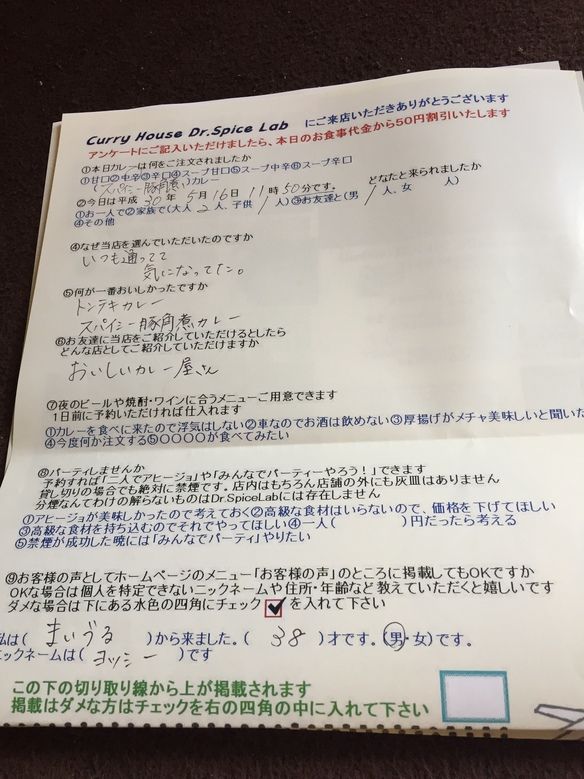 Curry House Dr.Spice Lab にご来店いただきありがとうございます
アンケートにご記入いただけましたら、本日のお食事代金から50円割引いたします
①本日カレーは何をご注文されましたか
①甘口②中辛③辛口④スープ甘口⑤スープ中辛⑥スープ辛口
(スパイシー豚角煮)カレー
②今日は平成 30 年 5 月 16 日 11 時 50 分です。 どなたと来られましたか
①お一人で②家族で(大人 2 人、子供 1 人)③お友達と(男 1 人、女 人)
④その他
④なぜ当店を選んでいただいたのですか
いつも通ってて
気になってた。
⑤何が一番おいしかったですか
トンテキカレー
スパイシー豚角煮カレー
⑥お友達に当店をご紹介していただけるとしたら
どんな店としてご紹介していただけますか
おいしいカレー屋さん
⑦夜のビールや焼酎・ワインに合うメニューご用意できます
1日前に予約いただければ仕入れます
①カレーを食べに来たので浮気はしない②車なのでお酒は飲めない③厚揚げがメチャ美味しいと聞いた
④今度何か注文する⑤〇〇〇〇が食べてみたい
⑧パーティしませんか
予約すれば「二人でアヒージョ」や「みんなでパーティーやろう!」できます
貸し切りの場合でも絶対に禁煙です。店内はもちろん店舗の外にも灰皿はありません
分煙なんてわけの解らないものはDr.SpiceLabには存在しません
①アヒージョが美味しかったので考えておく②高級な食材はいらないので、価格を下げてほしい
③高級な食材を持ち込むのでそれでやってほしい④一人( )円だったら考える
⑤禁煙が成功した暁には「みんなでパーティ」やりたい
⑨お客様の声としてホームページのメニュー「お客様の声」のところに掲載してもOKですか
OKな場合は個人を特定できないニックネームや住所・年齢など教えていただくと嬉しいです
ダメな場合は下にある水色の四角にチェック を入れて下さい
私は( まいづる )から来ました。( 38 )才です。(男・女)です。
ニックネームは( ヨッシー )です
この下の切り取り線から上が掲載されます
掲載はダメな方はチェックを右の四角の中に入れて下さい